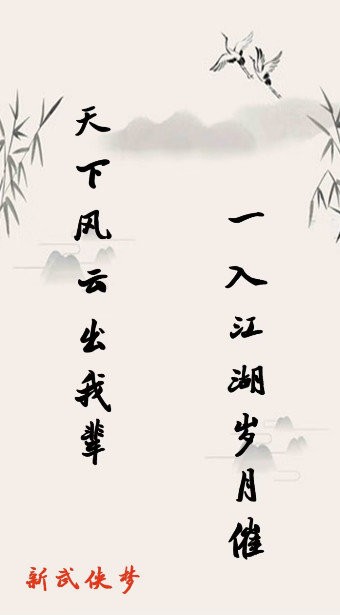 天下风云出我辈
一入江湖岁月催
新武侠梦